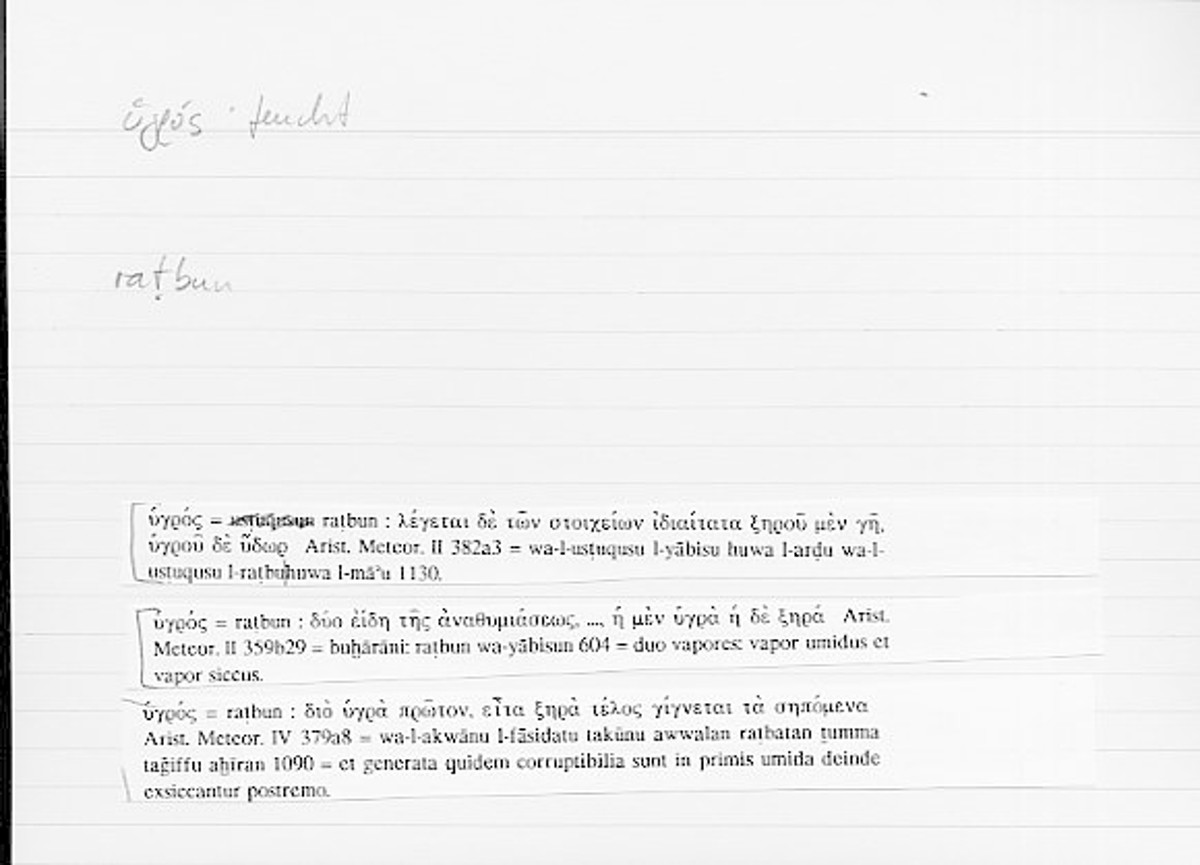 ὑγρός · feucht
raṭbun
ὑγρός = raṭbun : λέγεται δὲ τῶν στοιχείων ἰδιαίτατα ξηροῦ μὲν γῆ,
ὑγροῦ δὲ ὕδωρ Arist. Meteor. II 382a3 = wa-l-usṭuqusu l-yābisu huwa l-arḍu wa-l-
usṭuqusu l-raṭbu huwa l-māʾu 1130.
ὑγρός = raṭbun : δύο εἴδη τῆς ἀναθυμιάσεως, ..., ἡ μὲν ὑγρὰ ἡ δὲ ξηρά Arist.
Meteor. II 359b29 = buḫārāni: raṭbun wa-yābisun 604 = duo vapores: vapor umidus et
vapor siccus.
ὑγρός = raṭbun : διὸ ὑγρὰ πρῶτον, εἶτα ξηρὰ τέλος γίγνεται τὰ σηπόμενα
Arist. Meteor. IV 379a8 = wa-l-akwānu l-fāsidatu takūnu awwalan raṭbatan ṯumma
taǧiffu aḫīran 1090 = et generata quidem corruptibilia sunt in primis umida deinde
exsiccantur postremo.